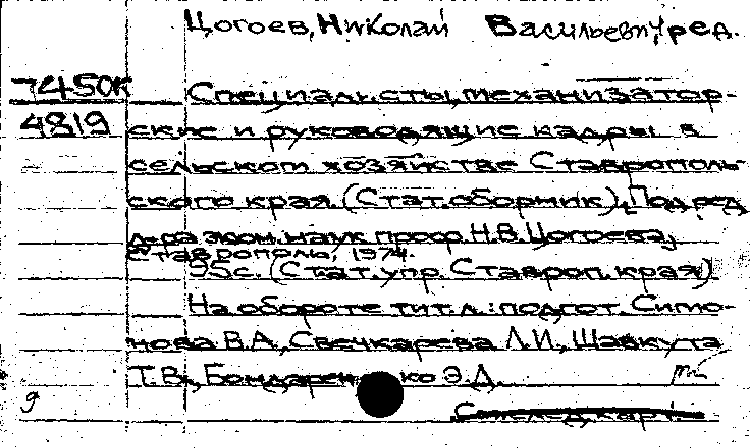 Цогоев, Николай Васильевич, ред.
7450к Специалисты, механизатор-
4819 ские и руководящие кадры в
сельском хозяйстве Ставрополь-
ского края. (Стат. сборник). Под ред
д-ра экон. наук проф. Н.В. Цогоева,
Ставрополь, 1974.
95с. (Стат. упр. Ставроп. края)
На обороте тит. л.: подгот. Симо-
нова В.А., Свечкарева Л.И., Шавкута
Т.В., Бондаренко Э.Д.
g